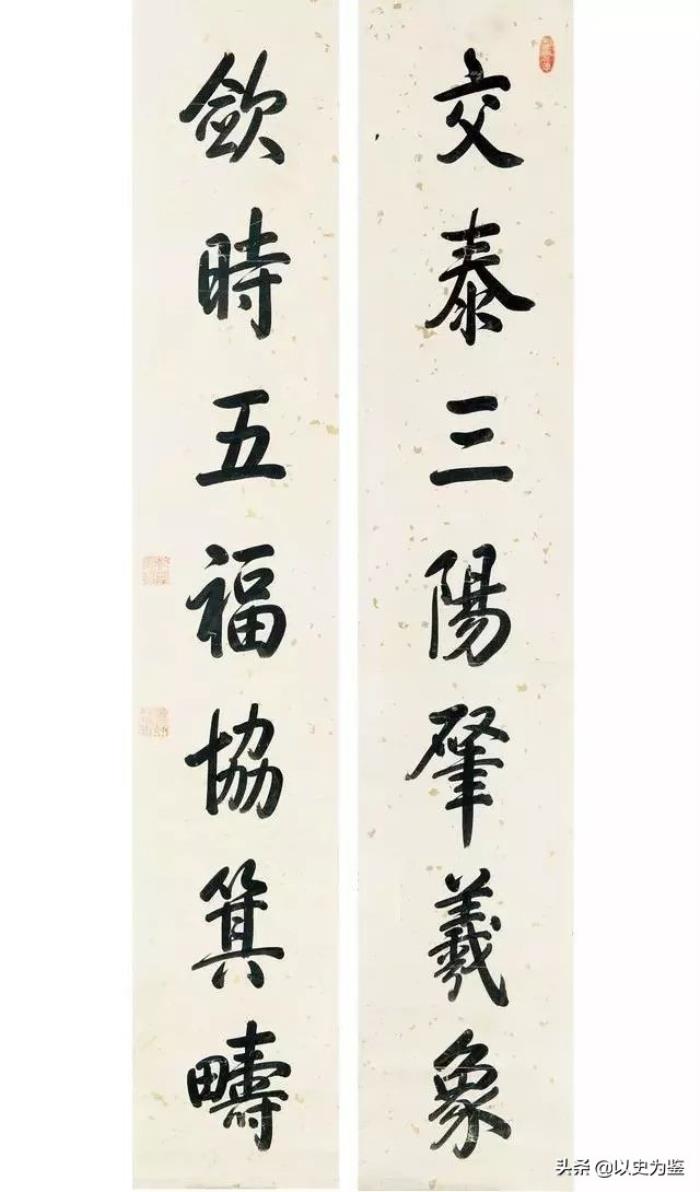 交泰三陽肇羲象
斂時五福協箕疇
头条 @以史为鉴